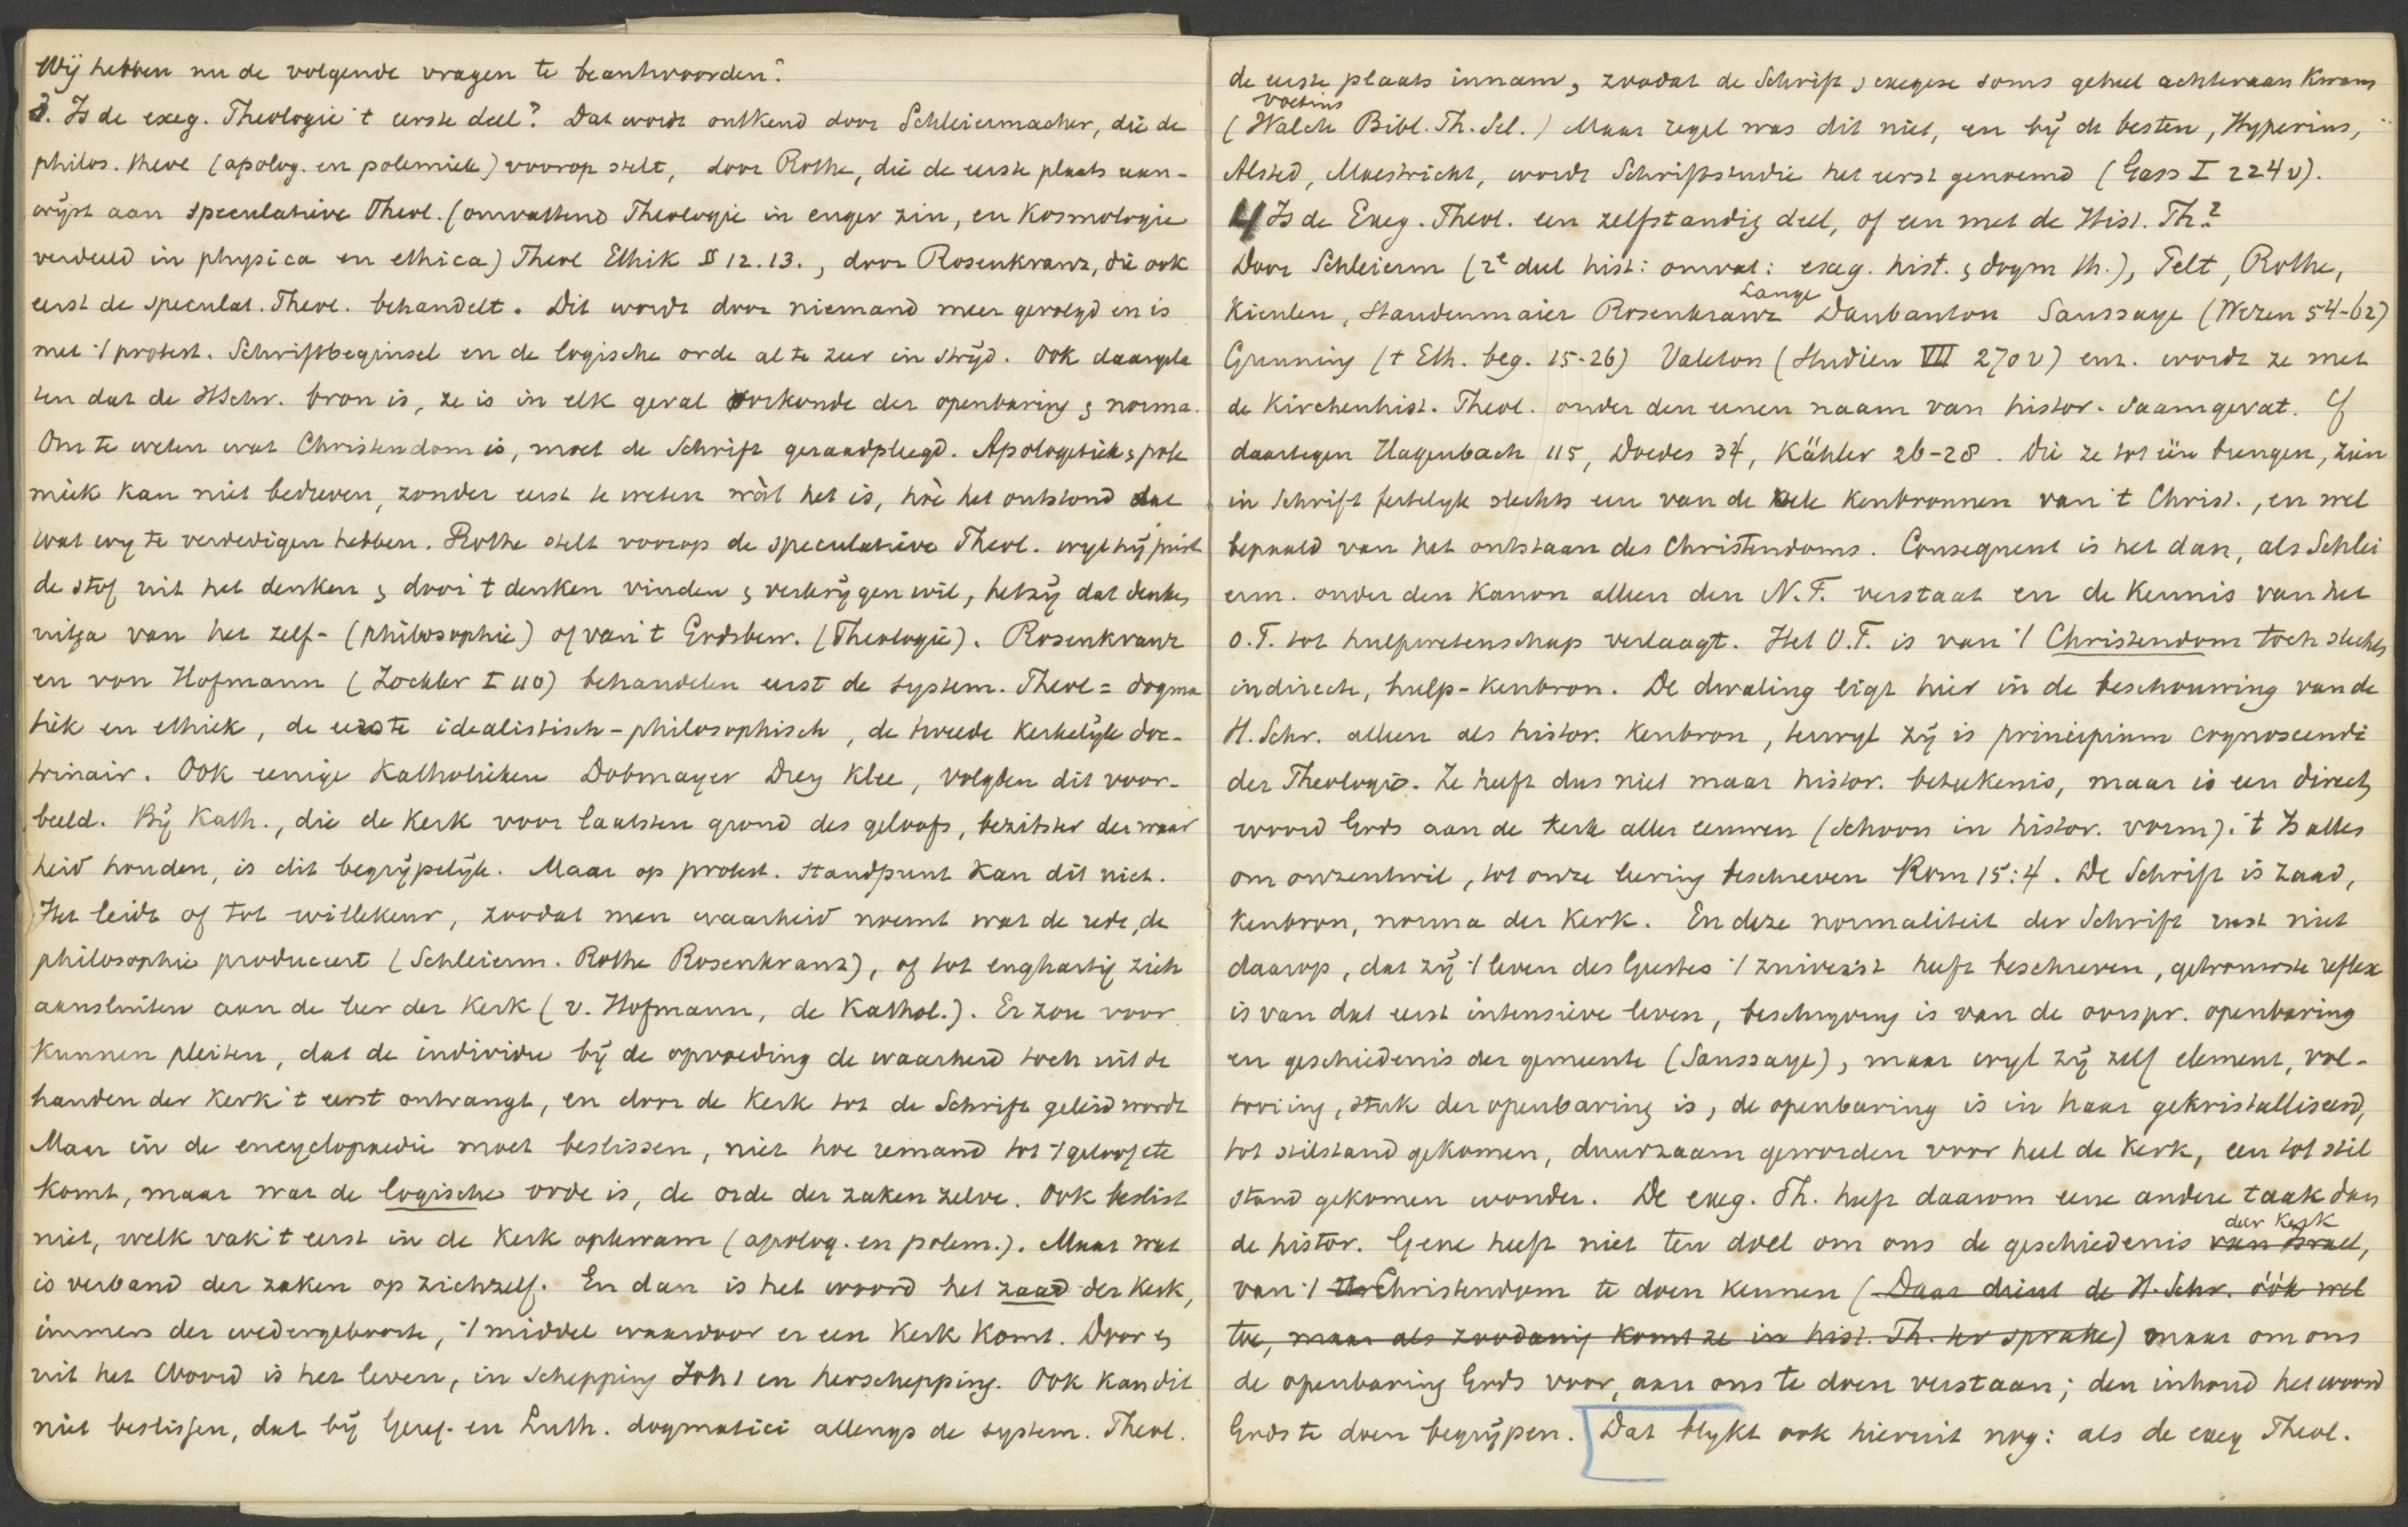 Wij hebben nu de volgende vragen te beantwoorden:
3. Is de exeg. Theologie 't eerste deel? Dat wordt ontkend door Schleiermacher, die de
philos. theol (apolog. en polemiek) voorop stelt, door Rothe, die de eerste plaats aan-
wijst aan speculatieve Theol. (omvattend Theologie in enger zin, en Kosmologie
verdeeld in physica en ethica) Theol Ethik §§ 12.13., door Rosenkranz, die ook
eerst de speculat. Theol. behandelt. Dit wordt door niemand meer gevolgd en is
met 't protest. Schriftbeginsel en de logische orde al te zeer in strijd. Ook daargela
ten dat de HSchr. bron is, ze is in elk geval oorkonde der openbaring & norma.
Om te weten wat Christendom is, moet de Schrift geraadpleegd. Apologetiek & pole
miek kan niet bedreven, zonder eerst te weten wàt het is, hoè het ontstond dat
wat wy te verdedigen hebben. Rothe stelt voorop de speculatieve Theol. wyl hij juist
de stof uit het denken & door 't denken vinden & verkrijgen wil, hetzij dat denken
uitga van het zelf- (philosophie) of van 't Godsbew. (Theologie). Rosenkranz
en von Hofmann (Zockler I 110) behandelen eerst de system. Theol = dogma
tiek en ethiek, de eerste idealistisch-philosophisch, de tweede kerkelijk doc-
trinair. Ook eenige Katholieken Dobmayer Drey Klee, volgden dit voor-
beeld. Bij Kath., die de Kerk voor laatsten grond des geloofs, bezitster der waar
heid houden, is dit begrijpelijk. Maar op protest. standpunt kan dit niet.
Het leidt of tot willekeur, zoodat men waarheid noemt wat de rede, de
philosophie produceert (Schleierm. Rothe Rosenkranz), of tot enghartig zich
aansluiten aan de leer der Kerk (v. Hofmann, de Kathol.). Er zou voor
kunnen pleiten, dat de individu bij de opvoeding de waarheid toch uit de
handen der Kerk 't eerst ontvangt, en door de Kerk tot de Schrift geleid wordt
Maar in de encyclopaedie moet beslissen, niet hoe iemand tot 't geloof etc
komt, maar wat de logische orde is, de orde der zaken zelve. Ook beslist
niet, welk vak 't eerst in de Kerk opkwam (apolog. en polem.). Maar wat
is verband der zaken op zichzelf. En dan is het woord het zaad der Kerk,
immers der wedergeboorte, 't middel waardoor er een Kerk komt. Door &
uit het Woord is het leven, in Schepping Joh 1 en herschepping. Ook kan dit
niet beslissen, dat bij Geref. en Luth. dogmatici allengs de system. Theol.
de eerste plaats innam, zoodat de Schrift & exegese soms geheel achteraan kwam
Voetius
(Walch Bibl. Th. Sel.) Maar regel was dit niet, en bij de besten, Hyperius,
Alsted, Maestricht, wordt Schriftstudie het eerst genoemd (Gass I 224 v).
4 Is de Exeg. Theol. een zelfstandig deel, of een met de Hist. Th.?
Door Schleierm (2e deel hist: omvat: exeg. hist. & dogm th.), Pelt, Rothe,
Kienlen, Staudenmaier Rosenkranz Lange Daubanton Saussaye (Wezen 54-62)
Gunning ('t Eth. beg. 15-26) Valeton (Studien VII 270 v) enz. wordt ze met
de Kirchenhist. Theol. onder den eenen naam van histor. saamgevat. Cf
daartegen Hagenbach 115, Doedes 34, Kähler 26-28. Die ze tot één brengen, zien
in Schrift feitelyk slechts een van de vele kenbronnen van 't Christ., en wel
bepaald van het ontstaan des Christendoms. Consequent is het dan, als Schlei
erm. onder den Kanon alleen den N.T. verstaat en de kennis van het
O.T. tot hulpwetenschap verlaagt. Het O.T. is van 't Christendom toch slechts
indirecte, hulp-kenbron. De dwaling ligt hier in de beschouwing van de
H. Schr. alleen als histor. kenbron, terwyl zij is principium cognoscendi
der Theologie. Ze heeft dus niet maar histor. beteekenis, maar is een direct
woord Gods aan de kerk aller eeuwen (schoon in histor. vorm). 't Is alles
om onzentwil, tot onze leering beschreven Rom 15:4. De Schrift is zaad,
kenbron, norma der Kerk. En deze normaliteit der Schrift rust niet
daarop, dat zij 't leven des Geestes 't zuiverst heeft beschreven, getrouwste reflex
is van dat eerst intensieve leven, beschryving is van de oorspr. openbaring
en geschiedenis der gemeente (Saussaye), maar wyl zij zelf element, vol-
tooiing, stuk der openbaring is, de openbaring is in haar gekristalliseerd,
tot stilstand gekomen, duurzaam geworden voor heel de Kerk, een tot stil
stand gekomen wonder. De exeg. Th. heeft daarom eene andere taak dan
de histor. Gene heeft niet ten doel om ons de geschiedenis van Israel, der Kerk
van 't Christendom te doen kennen (Daar dient de H. Schr. óók wel
toe, maar als zoodanig komt ze in hist. Th. ter sprake) maar om ons
de openbaring Gods voor, aan ons te doen verstaan; den inhoud het woord
Gods te doen begrijpen. Dat blykt ook hieruit nog: als de exeg Theol.